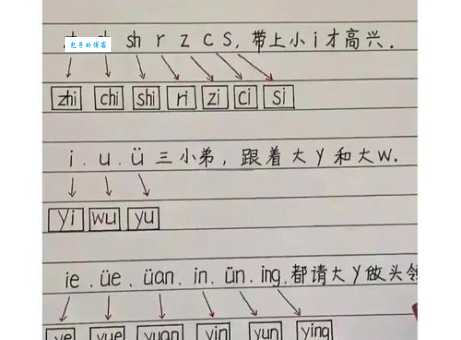 sh r z c s, 带上小i才高兴.
zhi chi shi ri zi ci si
i. u. ü 三小弟, 跟着大y和大w.
yi wu yu
ie. üe. üan. in. ün. ing. 都请大y做头领
ye yue yuan yin yun ying